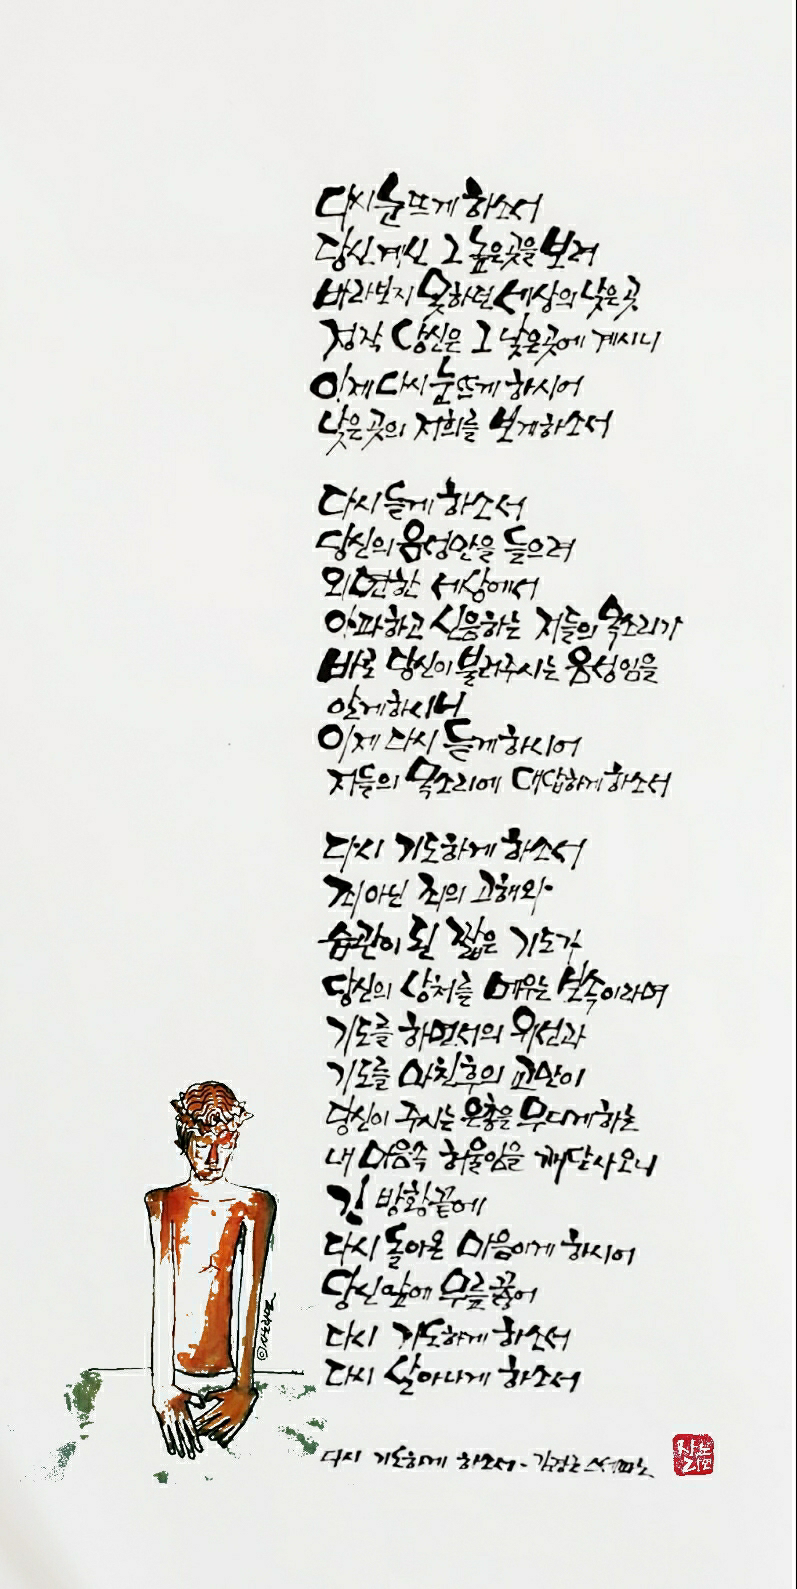 다시 눈뜨게 하소서
당신 계신 그 높은 곳을 보려
바라보지 못하던 세상의 낮은 곳
정작 당신은 그 낮은 곳에 계시니
이제 다시 눈뜨게 하시어
낮은 곳의 저희를 보게 하소서
다시 듣게 하소서
당신의 음성만을 들으려
외면한 세상에서
아파하고 신음하는 저들의 목소리가
바로 당신이 불러주시는 음성임을
알게 하시니
이제 다시 듣게 하시어
저들의 목소리에 대답하게 하소서
다시 기도하게 하소서
죄 아닌 죄의 고해와
습관이 된 짧은 기도가
당신의 상처를 메우는 보속이라며
기도를 하면서의 위선과
기도를 마친 후의 교만이
당신이 주시는 은총을 무디게 하는
내 마음속 허울임을 깨닫사오니
긴 방황 끝에
다시 돌아온 마음이게 하시어
당신 앞에 무릎 꿇어
다시 기도하게 하소서
다시 살아나게 하소서
다시 기도하게 하소서 - 스테파노